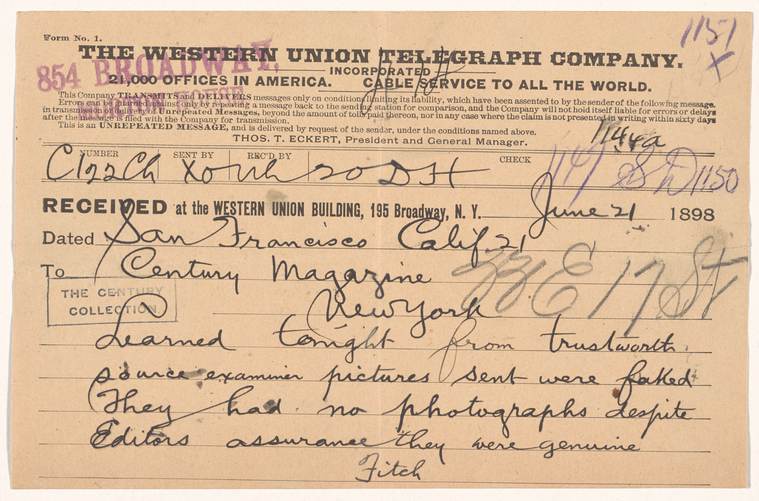 Form No. 1.
1151
X
THE WESTERN UNION TELEGRAPH COMPANY.
854 BROADWAY,
INCORPORATED
21,000 OFFICES IN AMERICA. CABLE SERVICE TO ALL THE WORLD.
This Company TRANSMITS and DELIVERS messages only on conditions limiting its liability, which have been assented to by the sender of the following message.
Errors can be guarded against only by repeating a message back to the sending station for comparison, and the Company will not hold itself liable for errors or delays
in transmission or delivery of Unrepeated Messages, beyond the amount of tolls paid thereon, nor in any case where the claim is not presented in writing within sixty days
after the message is filed with the Company for transmission.
This is an UNREPEATED MESSAGE, and is delivered by request of the sender, under the conditions named above.
THOS. T. ECKERT, President and General Manager.
1144a
NUMBER SENT BY REC'D BY CHECK
20 DH
1150
RECEIVED at the WESTERN UNION BUILDING, 195 Broadway, N. Y. June 21 1898
Dated San Francisco Calif 21
To Century Magazine
33 E 17 St
THE CENTURY
COLLECTION
New York
Learned tonight from trustworth
source examiner pictures sent were faked
They had no photographs despite
Editors assurance they were genuine
Fitch